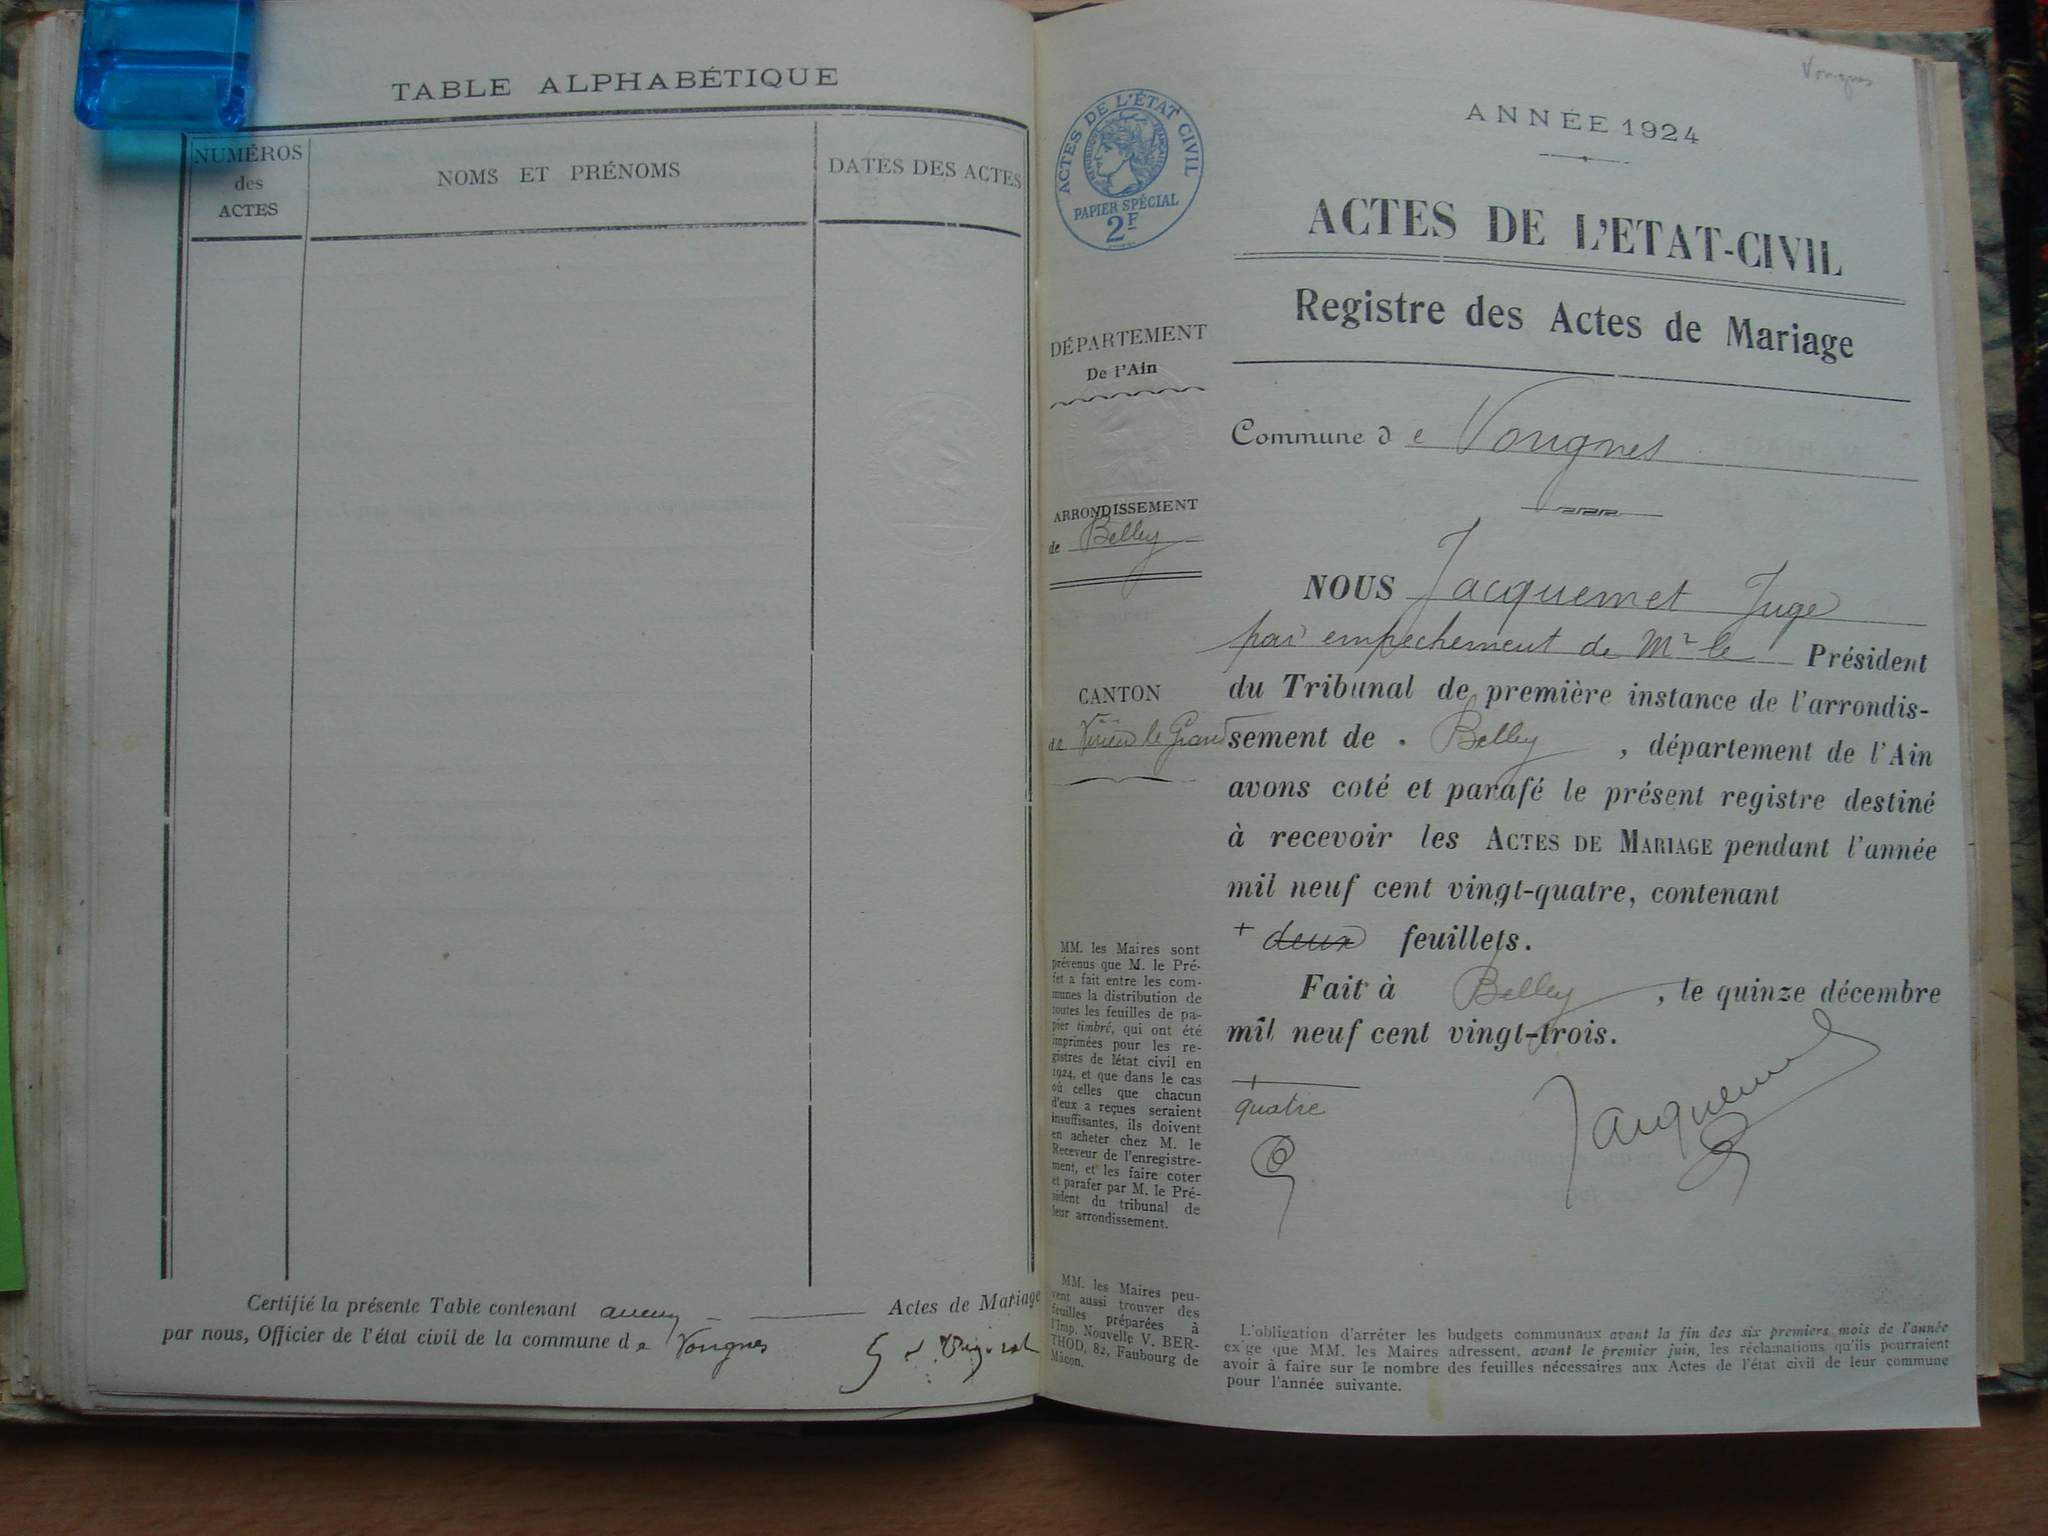 TABLE ALPHABÉTIQUE
NUMÉROS
des
ACTES
NOMS ET PRÉNOMS
DATES DES ACTES
Certifié la présente Table contenant aucun Actes de Mariage
par nous, Officier de l'état civil de la commune de Vongnes
Vongnes
ACTES DE L'ÉTAT CIVIL
RÉPUBLIQUE FRANÇAISE
PAPIER SPÉCIAL
2F
ANNÉE 1924
ACTES DE L'ETAT-CIVIL
Registre des Actes de Mariage
DÉPARTEMENT
De l'Ain
Commune de Vongnes
ARRONDISSEMENT
de Belley
CANTON
de Virieu le Grand
NOUS Jacquemet Juge
par empechement de Mr le Président
du Tribunal de première instance de l'arrondis-
sement de Belley, département de l'Ain
avons coté et parafé le présent registre destiné
à recevoir les ACTES DE MARIAGE pendant l'année
mil neuf cent vingt-quatre, contenant
+ deux feuillets.
Fait à Belley, le quinze décembre
mil neuf cent vingt-trois.
+
quatre
Jacquemet
MM. les Maires sont
prévenus que M. le Pré-
fet a fait entre les com-
munes la distribution de
toutes les feuilles de pa-
pier timbré, qui ont été
imprimées pour les re-
gistres de l'état civil en
1924, et que dans le cas
où celles que chacun
d'eux a reçues seraient
insuffisantes, ils doivent
en acheter chez M. le
Receveur de l'enregistre-
ment, et les faire coter
et parafer par M. le Pré-
sident du tribunal de
leur arrondissement.
MM. les Maires peu-
vent aussi trouver des
feuilles préparées à
l'Imp. Nouvelle V. BER-
THOD, 82, Faubourg de
Mâcon.
L'obligation d'arrêter les budgets communaux avant la fin des six premiers mois de l'année
exige que MM. les Maires adressent, avant le premier juin, les réclamations qu'ils pourraient
avoir à faire sur le nombre des feuilles nécessaires aux Actes de l'état civil de leur commune
pour l'année suivante.